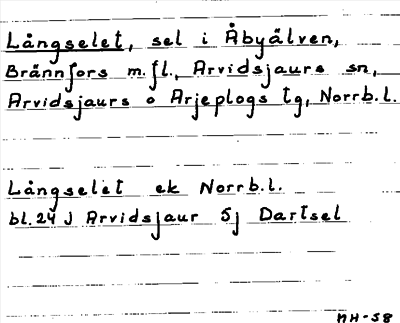 Långselet, sel i Åbyälven,
Brännfors m.fl., Arvidsjaurs sn,
Arvidsjaurs o Arjeplogs tg, Norrb.l.
Långselet ek Norrb.l.
bl.24 J Arvidsjaur 5j Dartsel
MH-58